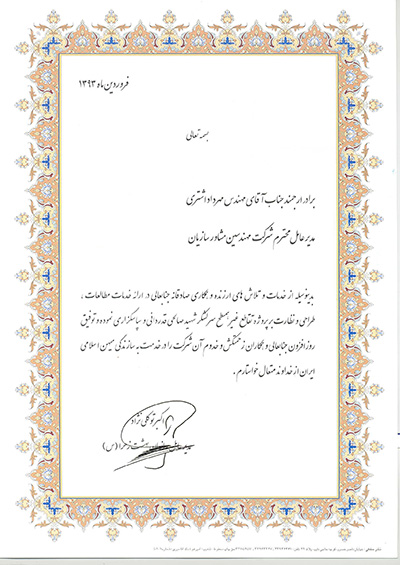 فروردین ماه ۱۳۹۳
بسمه تعالی
برادر ارجمند جناب آقای مهندس مهرداد اشتری
مدیر عامل محترم شرکت مهندسین مشاور سازیان
بدینوسیله از خدمات و تلاش های ارزنده و همکاری صادقانه جنابعالی در ارائه خدمات مطالعات ،
طراحی و نظارت بر پروژه تقاطع غیر همسطح سرلشگر شهید صالحی قدردانی و سپاسگزاری نموده و توفیق
روز افزون جنابعالی و همکاران زحمتکش و خدوم آن شرکت را در خدمت به سازندگی میهن اسلامی
ایران از خداوند متعال خواستارم .
اکبر توکلی نژاد
بهشت زهرا (س)